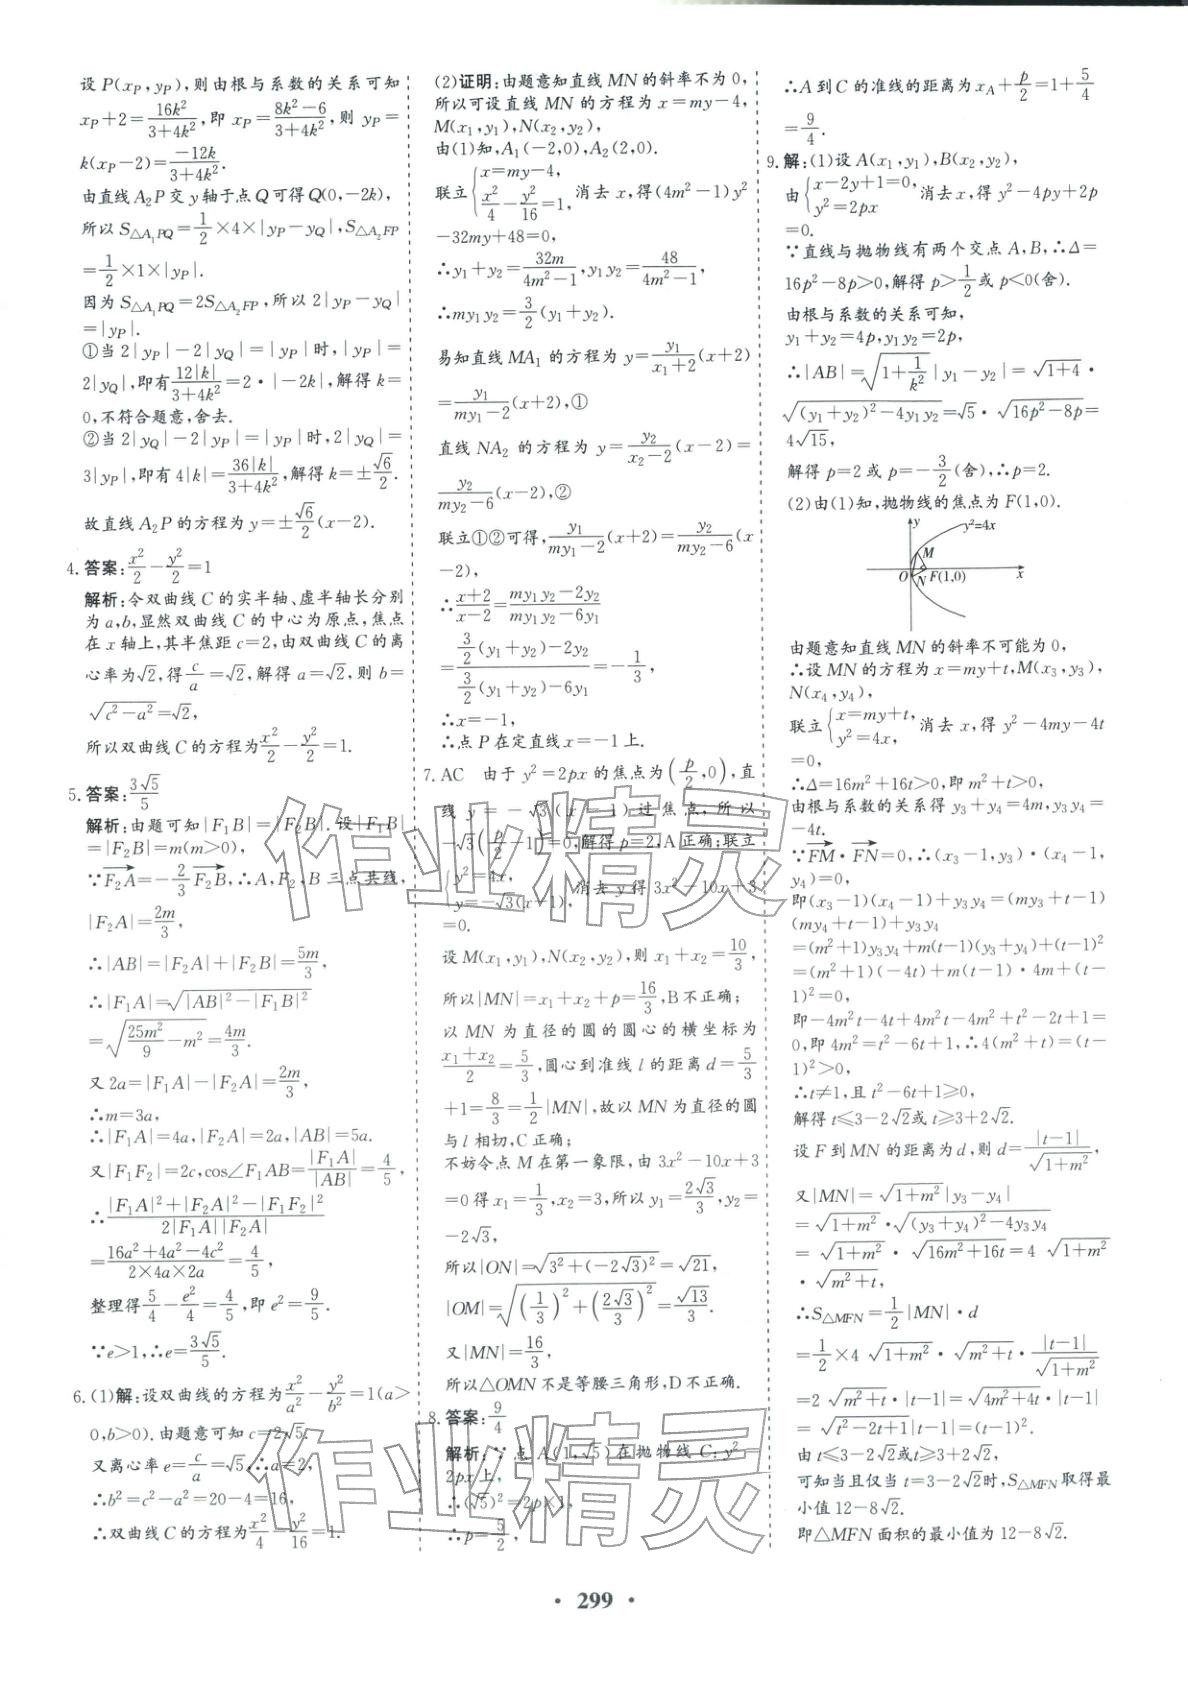 设P(xP,yP),则由根与系数的关系可知
xP+2=16k²/(3+4k²),即 xP=(8k²−6)/(3+4k²),则 yP=
k(xP−2)=−12k/(3+4k²).
由直线A₂P交y轴于点Q可得Q(0,−2k),
所以S△A₁PQ=1/2×4×|yP−yQ|,S△A₂FP
=1/2×1×|yP|.
因为S△A₁PQ=2S△A₂FP,所以2|yP−yQ|
=|yP|.
①当2|yP|−2|yQ|=|yP|时,|yP|=
2|yQ|,即有12|k|/(3+4k²)=2·|−2k|,解得k=
0,不符合题意,舍去.
②当2|yQ|−2|yP|=|yP|时,2|yQ|=
3|yP|,即有4|k|=36|k|/(3+4k²),解得k=±√6/2.
故直线A₂P的方程为y=±√6/2(x−2).
4.答案:x²/2−y²/2=1
解析:令双曲线C的实半轴、虚半轴长分别
为a,b,显然双曲线C的中心为原点,焦点
在x轴上,其半焦距c=2,由双曲线C的离
心率为√2,得c/a=√2,解得a=√2,则b=
√(c²−a²)=√2,
所以双曲线C的方程为x²/2−y²/2=1.
5.答案:3√5/5
解析:由题可知|F₁B|=|F₂B|.设|F₁B|
=|F₂B|=m(m>0),
∵F₂A→=−2/3F₂B→,∴A,F₂,B三点共线,
|F₂A|=2m/3,
∴|AB|=|F₂A|+|F₂B|=5m/3,
∴|F₁A|=√(|AB|²−|F₁B|²)
=√(25m²/9−m²)=4m/3.
又2a=|F₁A|−|F₂A|=2m/3,
∴m=3a,
∴|F₁A|=4a,|F₂A|=2a,|AB|=5a.
又|F₁F₂|=2c,cos∠F₁AB=|F₁A|/|AB|=4/5,
∴(|F₁A|²+|F₂A|²−|F₁F₂|²)/(2|F₁A||F₂A|)
=(16a²+4a²−4c²)/(2×4a×2a)=4/5,
整理得5/4−e²/4=4/5,即e²=9/5.
∵e>1,∴e=3√5/5.
6.(1)解:设双曲线的方程为x²/a²−y²/b²=1(a>
0,b>0).由题意可知c=2√5.
又离心率e=c/a=√5,∴a=2,
∴b²=c²−a²=20−4=16,
∴双曲线C的方程为x²/4−y²/16=1.
(2)证明:由题意知直线MN的斜率不为0,
所以可设直线MN的方程为x=my−4,
M(x₁,y₁),N(x₂,y₂),
由(1)知,A₁(−2,0),A₂(2,0).
联立{x=my−4, x²/4−y²/16=1, 消去x,得(4m²−1)y²
−32my+48=0,
∴y₁+y₂=32m/(4m²−1),y₁y₂=48/(4m²−1),
∴my₁y₂=3/2(y₁+y₂).
易知直线MA₁的方程为y=y₁/(x₁+2)(x+2)
=y₁/(my₁−2)(x+2),①
直线NA₂的方程为y=y₂/(x₂−2)(x−2)=
y₂/(my₂−6)(x−2),②
联立①②可得,y₁/(my₁−2)(x+2)=y₂/(my₂−6)(x
−2),
∴(x+2)/(x−2)=(my₁y₂−2y₂)/(my₁y₂−6y₁)
=(3/2(y₁+y₂)−2y₂)/(3/2(y₁+y₂)−6y₁)=−1/3,
∴x=−1,
∴点P在定直线x=−1上.
7.AC 由于y²=2px的焦点为(p/2,0),直
线 y=−√3(x−1)过焦点,所以
−√3(p/2−1)=0,解得p=2,A正确;联立
{y²=4x, y=−√3(x−1), 消去y得3x²−10x+3
=0.
设M(x₁,y₁),N(x₂,y₂),则x₁+x₂=10/3,
所以|MN|=x₁+x₂+p=16/3,B不正确;
以MN为直径的圆的圆心的横坐标为
(x₁+x₂)/2=5/3,圆心到准线l的距离d=5/3
+1=8/3=1/2|MN|,故以MN为直径的圆
与l相切,C正确;
不妨令点M在第一象限,由3x²−10x+3
=0得x₁=1/3,x₂=3,所以y₁=2√3/3,y₂=
−2√3,
所以|ON|=√(3²+(−2√3)²)=√21,
|OM|=√((1/3)²+(2√3/3)²)=√13/3.
又|MN|=16/3,
所以△OMN不是等腰三角形,D不正确.
8.答案:9/4
解析:∵点A(1,√5)在抛物线C:y²=
2px上,
∴(√5)²=2p×1,
∴p=5/2,
∴A到C的准线的距离为xA+p/2=1+5/4
=9/4.
9.解:(1)设A(x₁,y₁),B(x₂,y₂),
由{x−2y+1=0, y²=2px 消去x,得y²−4py+2p
=0.
∵直线与抛物线有两个交点A,B,∴Δ=
16p²−8p>0,解得p>1/2或p<0(舍).
由根与系数的关系可知,
y₁+y₂=4p,y₁y₂=2p,
∴|AB|=√(1+1/k²)|y₁−y₂|=√(1+4)·
√((y₁+y₂)²−4y₁y₂)=√5·√(16p²−8p)=
4√15,
解得p=2或p=−3/2(舍),∴p=2.
(2)由(1)知,抛物线的焦点为F(1,0).
y
y²=4x
M
O
N
F(1,0)
x
由题意知直线MN的斜率不可能为0,
∴设MN的方程为x=my+t,M(x₃,y₃),
N(x₄,y₄),
联立{x=my+t, y²=4x, 消去x,得y²−4my−4t
=0,
∴Δ=16m²+16t>0,即m²+t>0,
由根与系数的关系得y₃+y₄=4m,y₃y₄=
−4t.
∵FM→·FN→=0,∴(x₃−1,y₃)·(x₄−1,
y₄)=0,
即(x₃−1)(x₄−1)+y₃y₄=(my₃+t−1)
(my₄+t−1)+y₃y₄
=(m²+1)y₃y₄+m(t−1)(y₃+y₄)+(t−1)²
=(m²+1)(−4t)+m(t−1)·4m+(t−
1)²=0,
即−4m²t−4t+4m²t−4m²+t²−2t+1=
0,即4m²=t²−6t+1,∴4(m²+t)=(t−
1)²>0,
∴t≠1,且t²−6t+1≥0,
解得t≤3−2√2或t≥3+2√2.
设F到MN的距离为d,则d=|t−1|/√(1+m²),
又|MN|=√(1+m²)|y₃−y₄|
=√(1+m²)·√((y₃+y₄)²−4y₃y₄)
=√(1+m²)·√(16m²+16t)=4√(1+m²)
·√(m²+t),
∴S△MFN=1/2|MN|·d
=1/2×4√(1+m²)·√(m²+t)·|t−1|/√(1+m²)
=2√(m²+t)·|t−1|=√(4m²+4t)·|t−1|
=√(t²−2t+1)|t−1|=(t−1)².
由t≤3−2√2或t≥3+2√2,
可知当且仅当t=3−2√2时,S△MFN取得最
小值12−8√2.
即△MFN面积的最小值为12−8√2.
作业精灵
作业精灵
· 299 ·